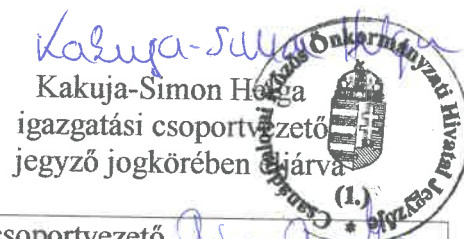 Kakuja-Simon Helga
Kakuja-Simon Helga
igazgatási csoportvezető
jegyző jogkörében eljárva
Csanádpalotai Közös Önkormányzati Hivatal Jegyzője *
(1.)
csoportvezető